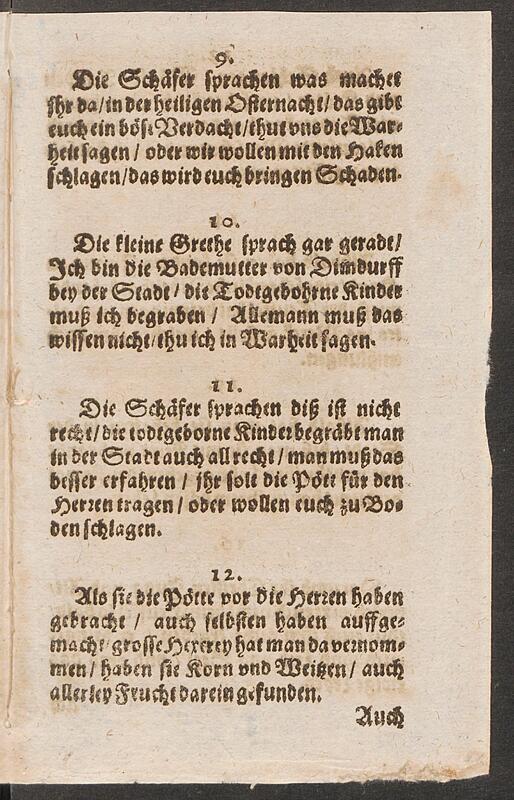 9.
Die Schäfer sprachen was machet
jhr da/ in der heiligen Osternacht/ das gibt
euch ein böse Verdacht/ thut vns die War-
heit sagen / oder wir wollen mit den Haken
schlagen/ das wird euch bringen Schaden.
10.
Die kleine Grethe sprach gar geradt/
Ich bin die Bademutter von Dimdurff
bey der Stadt / die Todtgebohrne Kinder
muß ich begraben / Allemann muß das
wissen nicht/ thu ich in Warheit sagen.
11.
Die Schäfer sprachen diß ist nicht
recht/ die todtgeborne Kinder begräbt man
in der Stadt auch all recht / man muß das
besser erfahren / jhr solt die Pött für den
Herren tragen / oder wollen euch zu Bo-
den schlagen.
12.
Als sie die Pötte vor die Herren haben
gebracht / auch selbsten haben auffge-
macht/ grosse Hexerey hat man da vernom-
men / haben sie Korn vnd Weitzen / auch
allerley Frucht darein gefunden.
Auch